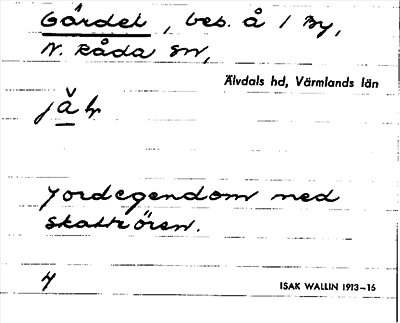 Gärdet, bes. å 1 By,
N. Råda sn,
Älvdals hd, Värmlands län
Jordegendom med
skattören.
ISAK WALLIN 1913–16